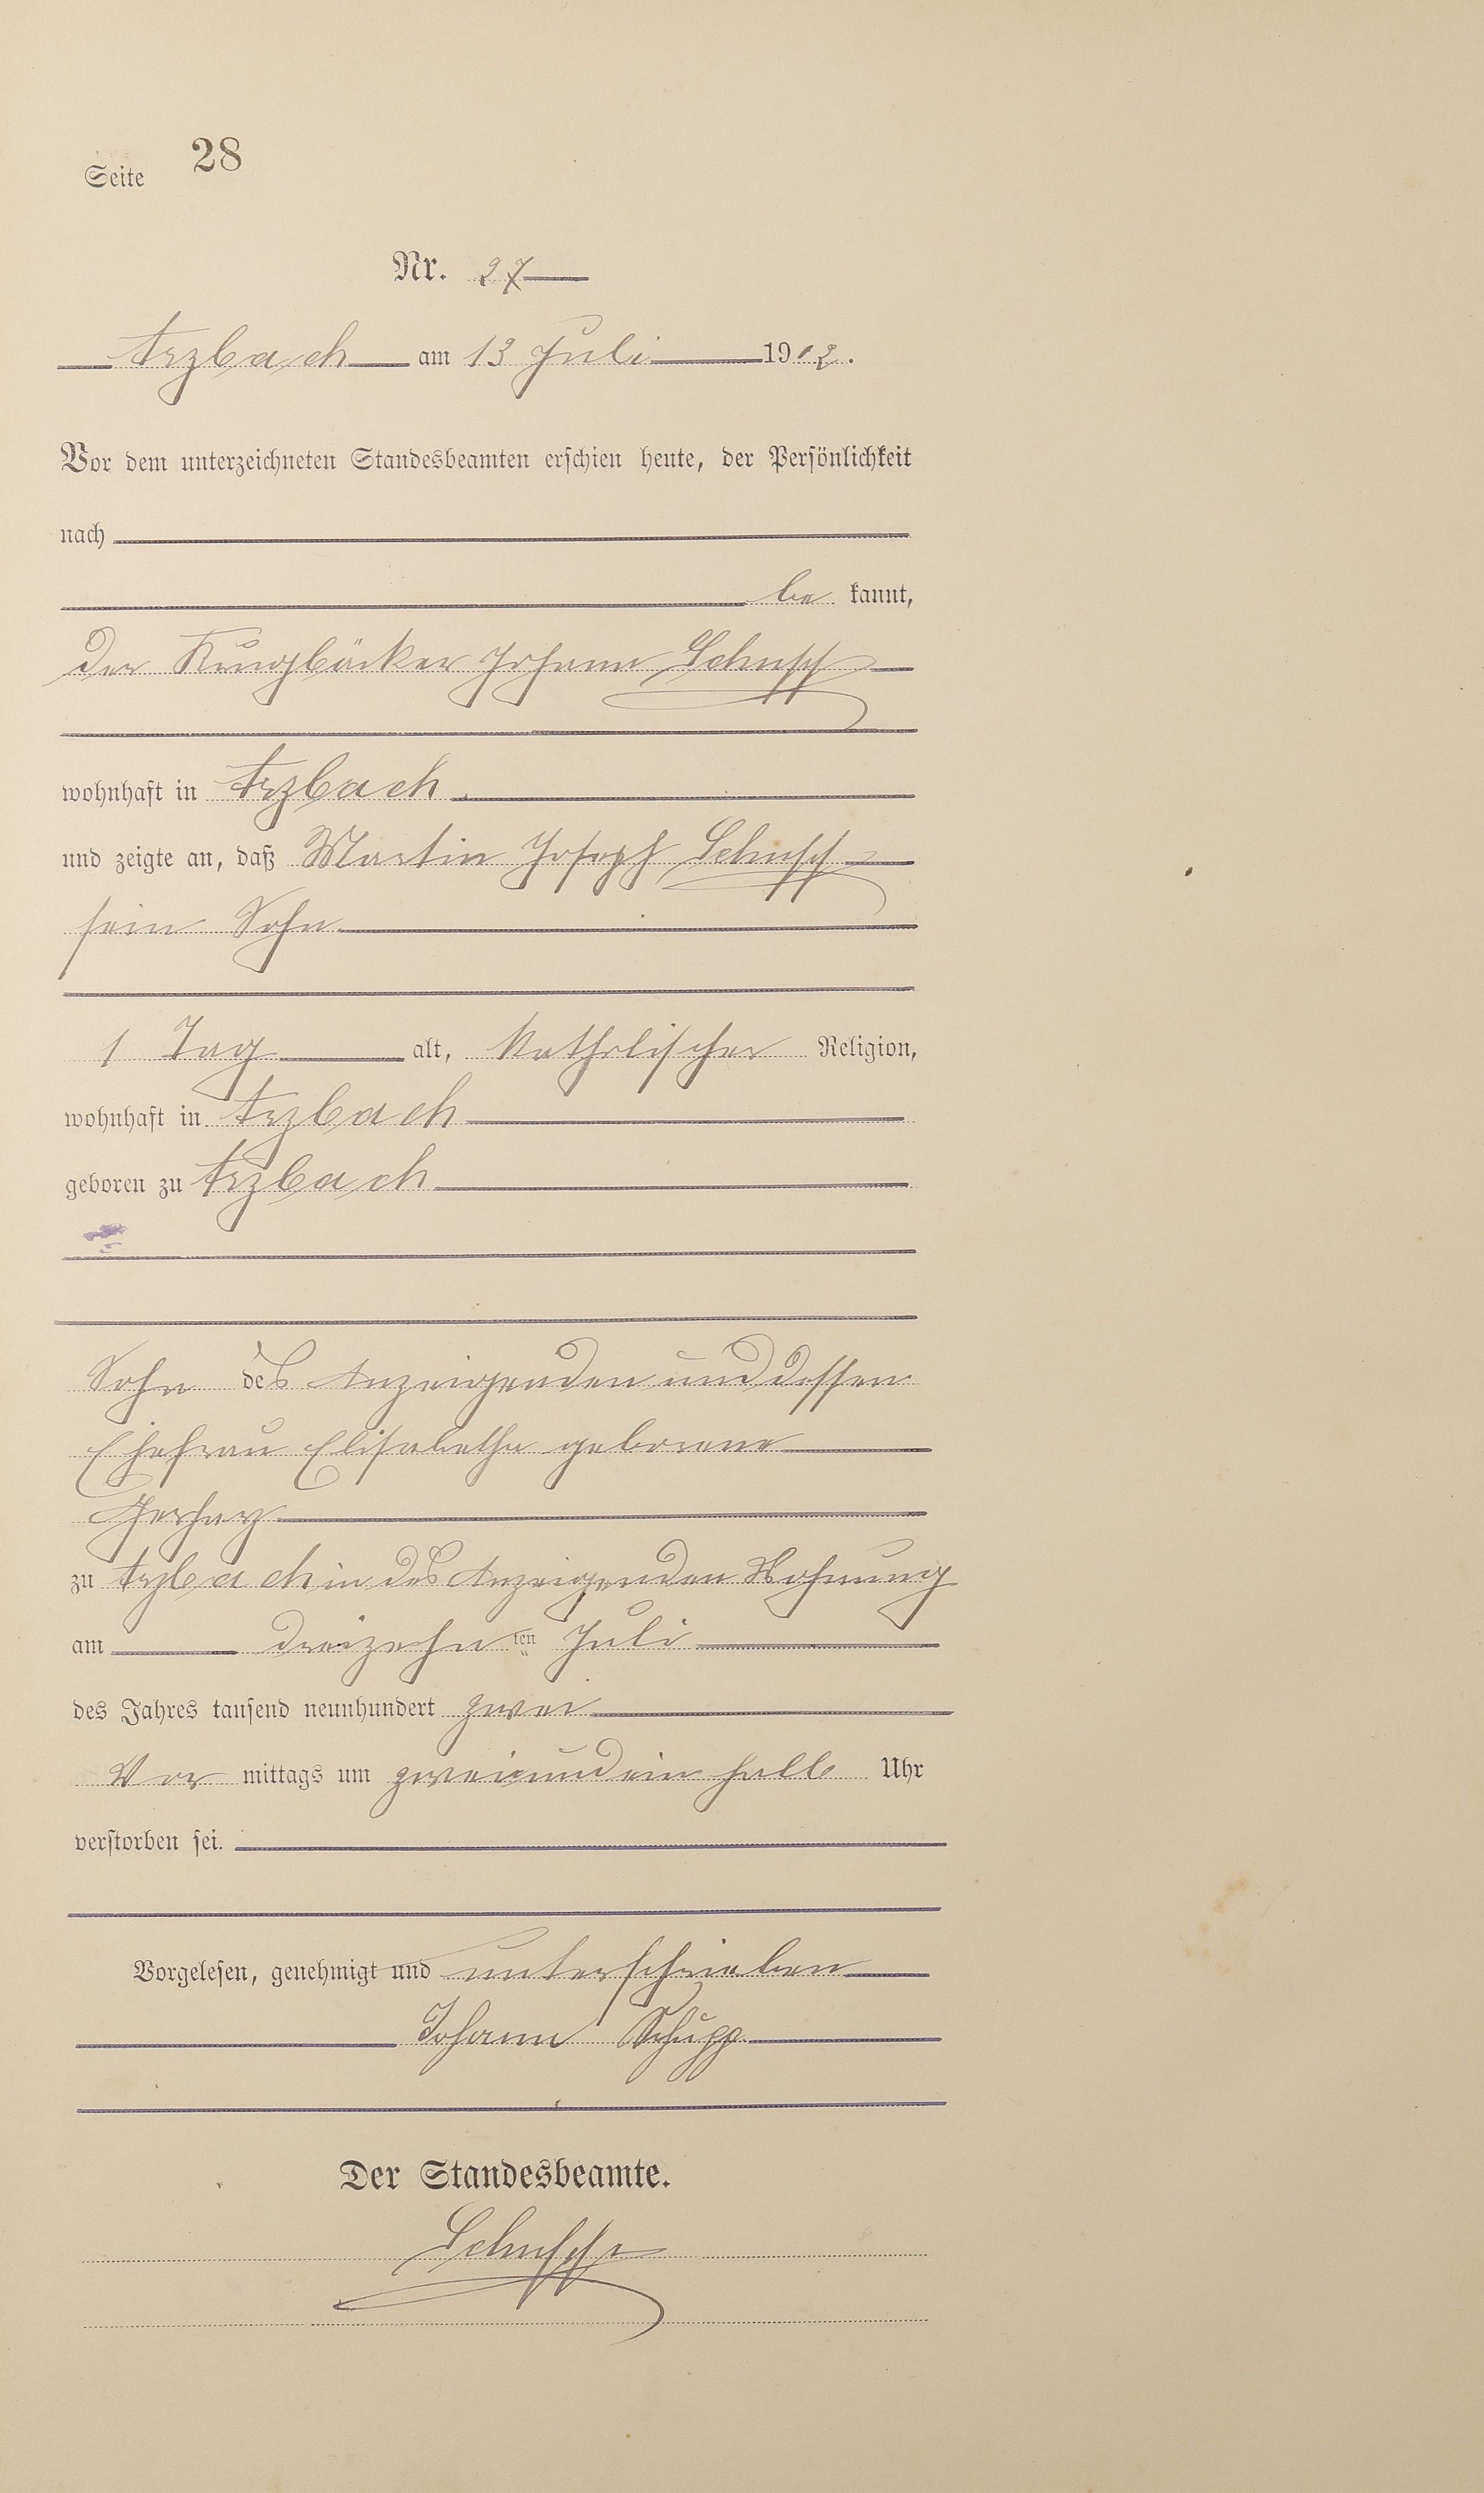 Seite 28
Nr. 27
Arzbach am 13 Juli 1902.
Vor dem unterzeichneten Standesbeamten erschien heute, der Persönlichkeit
nach
be kannt,
der Krugbäcker Johann Schupp
wohnhaft in Arzbach
und zeigte an, daß Martin Joseph Schupp
sein Sohn
1 Tag alt, katholischer Religion,
wohnhaft in Arzbach
geboren zu Arzbach
Sohn des Anzeigenden und dessen
Ehefrau Elisabetha geborene
Gerharz
zu Arzbach in des Anzeigenden Wohnung
am dreizehn ten Juli
des Jahres tausend neunhundert zwei
Vor mittags um zweiundein halb Uhr
verstorben sei.
Vorgelesen, genehmigt und unterschrieben
Johann Schupp
Der Standesbeamte.
Schupp